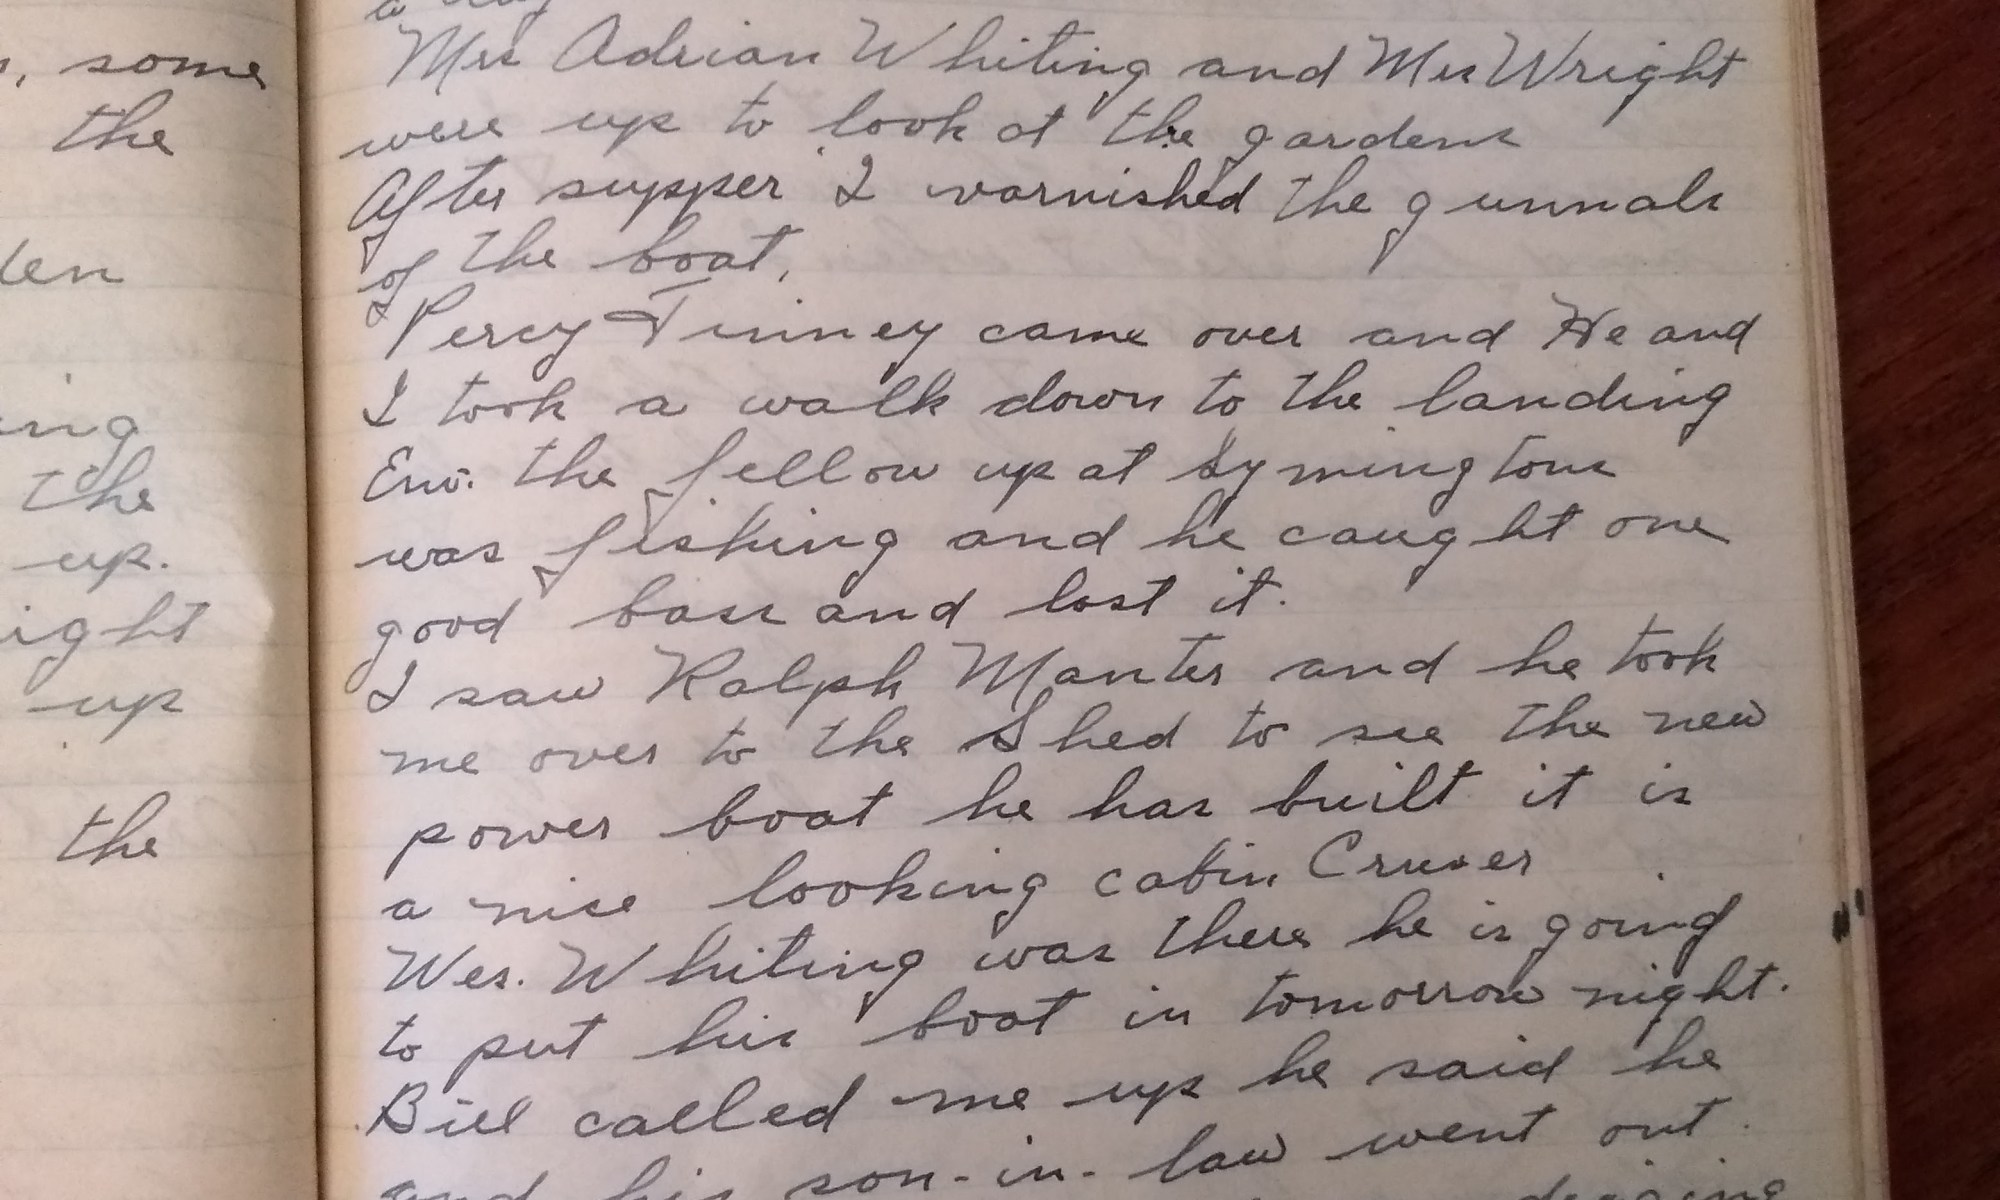 , some
the
den
ing
the
up.
ight
up
the
a day
Mrs Adrian Whiting and Mrs Wright
were up to look at the gardens
After supper I varnished the gunnals
of the boat.
Percy Tinney came over and He and
I took a walk down to the landing
the fellow up at Symingtons
was fishing and he caught one
good bass and lost it.
I saw Ralph Manter and he took
me over to the Shed to see the new
power boat he has built it is
a nice looking cabin Cruser
Wes. Whiting was there he is going
to put his boat in tomorrow night.
Bill called me up he said he
and his son-in-law went out